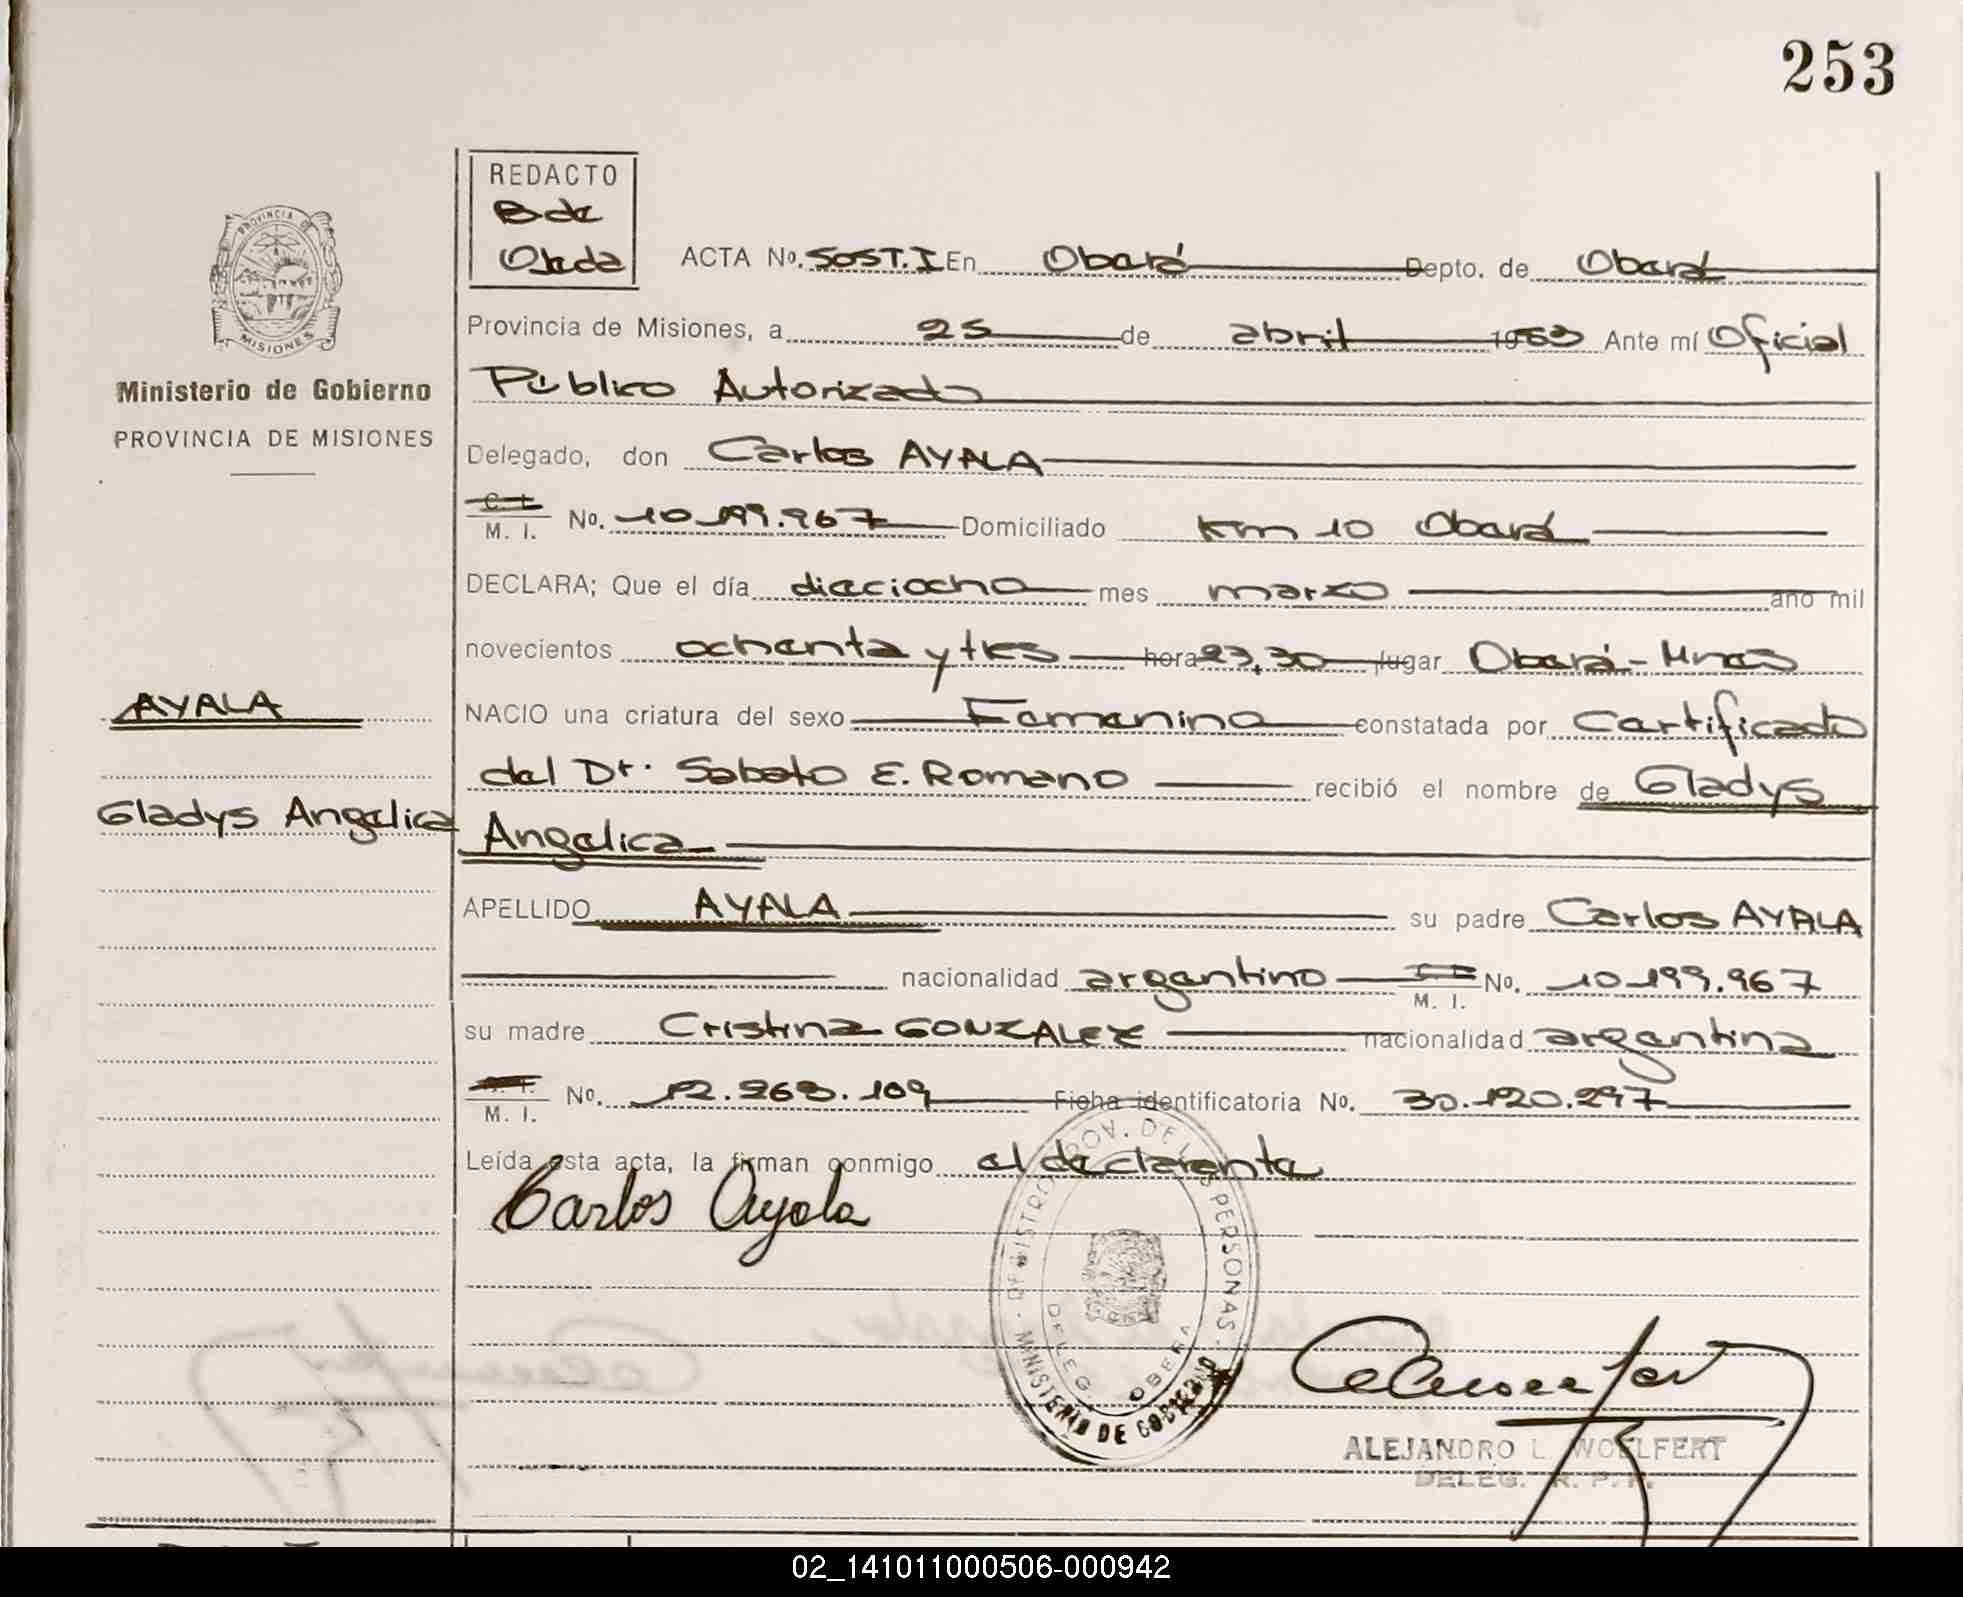 253
REDACTO
B de
Ojeda
ACTA No. 505T.I En Oberá Depto. de Oberá
PROVINCIA DE
MISIONES
Provincia de Misiones, a 25 de abril 1983 Ante mí Oficial
Ministerio de Gobierno
PROVINCIA DE MISIONES
Público Autorizado
Delegado, don Carlos AYALA
C. I.
M. I. No. 10.199.967 Domiciliado Km 10 Oberá
DECLARA; Que el día dieciocho mes marzo año mil
novecientos ochenta y tres hora 23,30 lugar Oberá - Mnes
AYALA
NACIO una criatura del sexo Femenino constatada por Certificado
del Dr. Sabato E. Romano recibió el nombre de Gladys
Gladys Angelica
Angelica
APELLIDO AYALA su padre Carlos AYALA
nacionalidad argentino M. I. No. 10.199.967
su madre Cristina GONZALEZ nacionalidad argentina
M. I. No. 12.268.109 Ficha identificatoria No. 30.120.297
Leída esta acta, la firman conmigo el declarante
Carlos Ayala
PROV. DE LAS PERSONAS
MINISTERIO DE GOBIERNO
DELEG. OBERA
ALEJANDRO L. WOELFERT
DELEG. R. P. P.
02_141011000506-000942